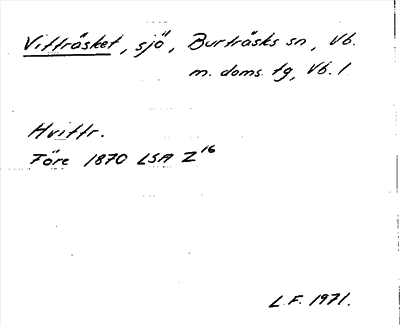 Vitträsket, sjö, Burträsks sn, Vb.
m. doms. tg, Vb. 1
Hvittr.
Före 1870 LSA Z16
L.F. 1971.